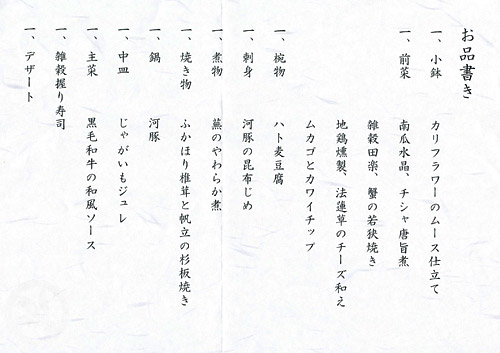 お品書き
一、小鉢　カリフラワーのムース仕立て
一、前菜　南瓜水晶、チシャ唐旨煮
雑穀田楽、蟹の若狭焼き
地鶏燻製、法蓮草のチーズ和え
ムカゴとカワイチップ
一、椀物　ハト麦豆腐
一、刺身　河豚の昆布じめ
一、煮物　蕪のやわらか煮
一、焼き物　ふかほり椎茸と帆立の杉板焼き
一、鍋　河豚
一、中皿　じゃがいもジュレ
一、主菜　黒毛和牛の和風ソース
一、雑穀握り寿司
一、デザート